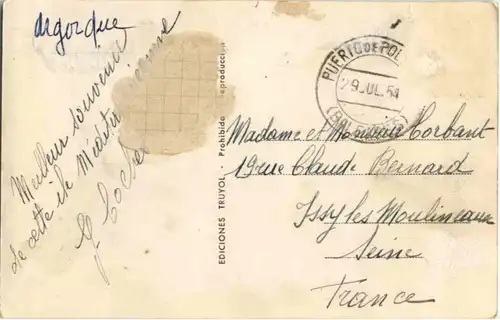 argorque
Meilleur souvenir
de cette ile de Méditerranienne
EDICIONES TRUYOL - Prohibida reproducción
PUERTO DE POL
29 JUL. 5
(BAL
Madame et Monsieur Corbant
19 rue Claude Bernard
Issy les Moulineaux
Seine
France